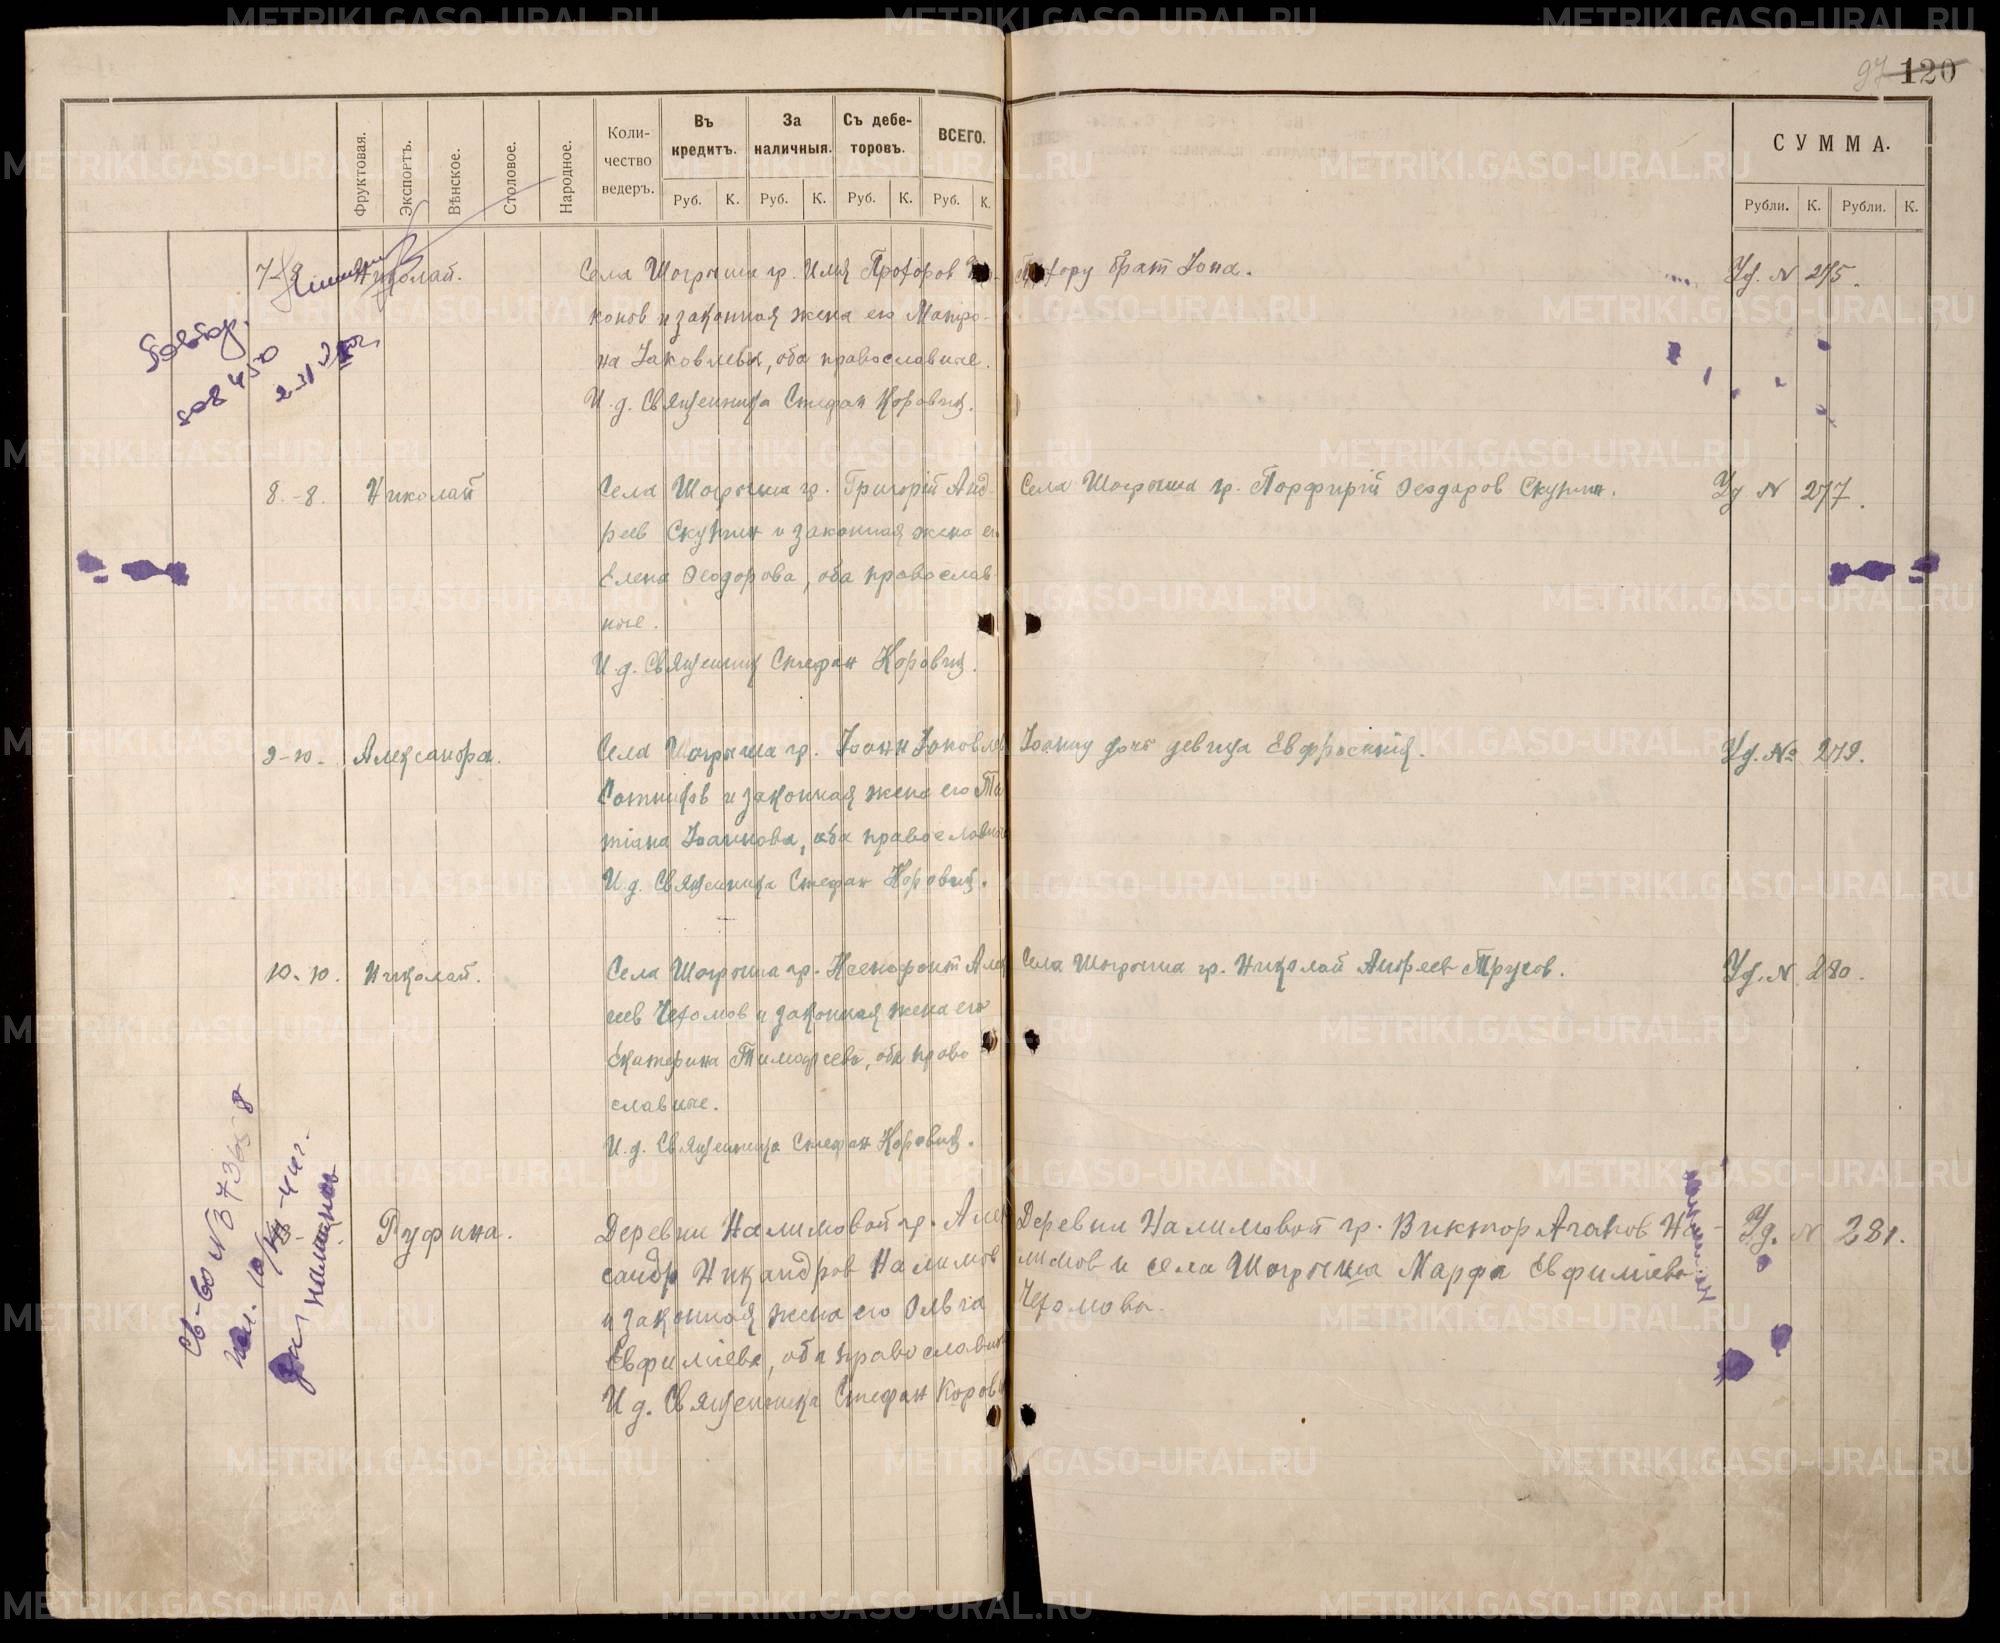 97 120
Фруктовая.
Экспортъ.
Вѣнское.
Столовое.
Народное.
Коли-
чество
ведеръ.
Въ
кредитъ.
За
наличныя.
Съ дебе-
торовъ.
ВСЕГО.
Руб. К. Руб. К. Руб. К. Руб. К.
СУММА.
Рубли. К. Рубли. К.
Николай.
Села Шогрыша гр. Илия Прохоров
конов и законная жена его Матро-
на Iаковлева, оба православные.
И. д. Священника Стефан Коровин.
брат Iона.
Уд. N 275.
8.-8. Николай
Села Шогрыша гр. Григорий Анд-
реев Скутин и законная жена его
Елена Ѳеодорова, оба православ-
ные.
И. д. Священник Стефан Коровин.
Села Шогрыша гр. Порфирий Ѳеодоров Скутин.
Уд N 277.
9-10. Александра.
Села Шогрыша гр. Iоанн Iаковлев
Сотников и законная жена его Та
тiана Iоаннова, оба православные
И. д. Священника Стефан Коровин.
Iоанну дочь девица Евфросинiя.
Уд. № 279.
10.-10. Николай.
Села Шогрыша гр. Ксенофонт Алек
еев Чехомов и законная жена его
Екатерина Тимофеева, оба право-
славные.
И. д. Священника Стефан Коровин.
Села Шогрыша гр. Николай Андреев Трусов.
Уд. N 280.
Св-во N 373658
Руфина.
Деревни Налимовой гр. Алек
сандр Никандров Налимов
и законная жена его Ольга
Евфимiева, оба православные
И д. Священника Стефан Корови
Деревни Налимовой гр. Виктор Агапов На-
лимов и села Шогрыша Марфа Евфимiева
Чехомова.
Уд. N 281.